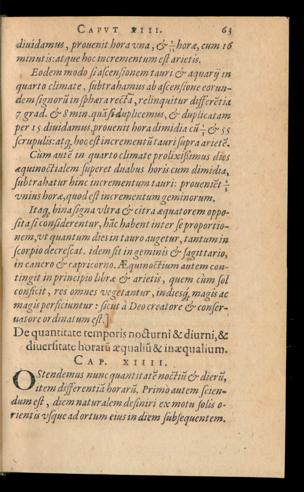 CAPVT XIII. 63
diuidamus, prouenit hora vna, & 3/11 horæ, cum 16
minutis: atque hoc incrementum est arietis.
Eodem modo si ascensionem tauri & aquarij in
quarto climate, subtrahamus ab ascensione eorun-
dem signorũ in sphæra rectã, relinquitur differẽtia
7 grad. & 8 min. quã si duplicemus, & duplicatam
per 15 diuidamus, prouenit hora dimidia cũ & 55
scrupulis: atq; hoc est incrementũ tauri supra arietẽ.
Cum autẽ in quarto climate prolixissimus dies
æquinoctialem superet duabus horis cum dimidia,
subtrahatur hinc incrementum tauri: proueniẽt
vnius horæ, quod est incrementum geminorum.
Itaq; bina signa vltra & citra æquatorem oppo-
sita si considerentur, hãc habent inter se proportio-
nem, vt quantum dies in tauro augetur, tantum in
scorpio decrescat. idem fit in geminis & sagittario,
in cancro & capricorno. Æquinoctium autem con-
tingit in principio libræ & arietis, quem cùm sol
conficit, res omnes vegetantur, indiesq; magis ac
magis perficiuntur: sicut à Deo creatore & conser-
uatore ordinatum est.]
De quantitate temporis nocturni & diurni, &
diuersitate horarũ æqualiũ & inæqualium.
CAP. XIIII.
OStendemus nunc quantitatẽ noctiũ & dierũ,
item differentiã horarũ. Primo autem scien-
dum est, diem naturalem definiri ex motu solis o-
rientis vsque ad ortum eius in diem subsequentem.